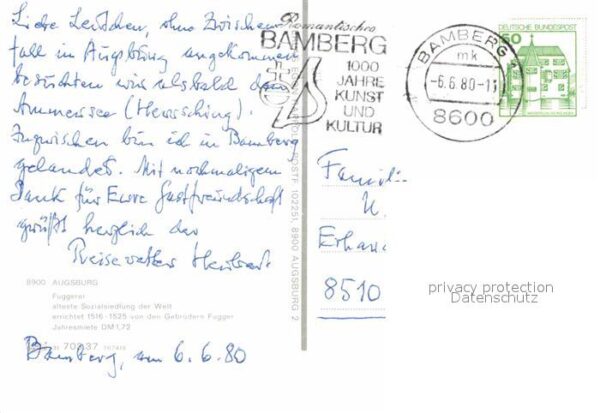 Liebe Leutchen, ohne Zwischen-
fall in Augsburg angekommen
besuchten wir alsbald den
Ammersee (Herrsching).
Inzwischen bin ich in Bamberg
gelandet. Mit nochmaligem
Dank für Eure Gastfreundschaft
grüßt herzlich der
Reisevater Herbert.
8900 AUGSBURG
Fuggerei
älteste Sozialsiedlung der Welt
errichtet 1516-1525 von den Gebrüdern Fugger
Jahresmiete DM 1,72
Bamberg, am 6.6.80
POSTF. 102251, 8900 AUGSBURG 2
Romantisches
BAMBERG
1000
JAHRE
KUNST
UND
KULTUR
BAMBERG 1
mk
-6.6.80-11
8600
DEUTSCHE BUNDESPOST
50
Famili
Erhar
8510
privacy protection
Datenschutz